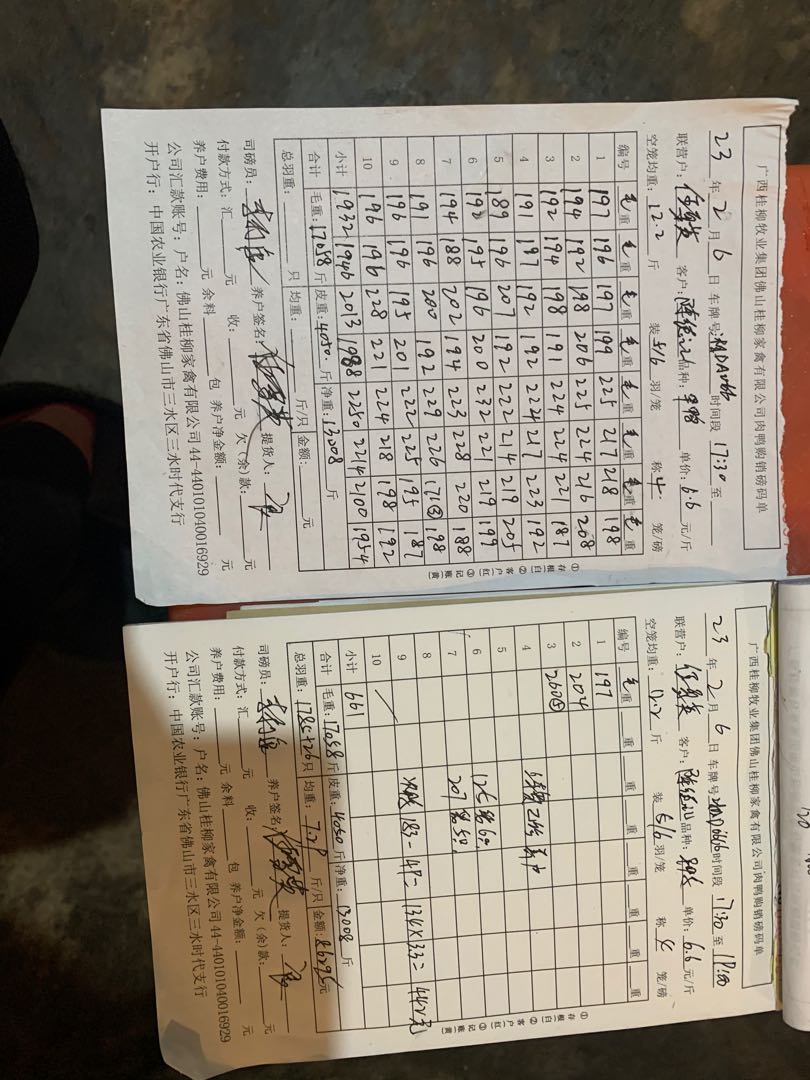 广西桂柳牧业集团佛山桂柳家禽有限公司肉鸭购销磅码单
23 年 2 月 6 日 车牌号: 时间段 17:30 至
联营户: 客户: 品种: 单价: 6.6 元/斤
空笼均重: 12.2 斤 装 5/6 羽/笼 称 4 笼/磅
编号 毛重 毛重 毛重 毛重 毛重 毛重 毛重 毛重
1 197 196 197 199 225 217 218 198
2 194 192 198 206 225 224 216 208
3 192 194 198 191 224 224 221 187
4 191 197 192 192 224 217 223 192
5 189 196 207 192 222 214 219 205
6 192 195 196 200 232 221 219 199
7 194 188 202 194 223 228 220 188
8 191 196 200 192 229 226 171③ 198
9 196 196 195 201 222 225 195 187
10 196 196 228 221 224 218 198 192
小计 1932 1946 2013 1988 2250 2214 2100 1954
合计 毛重: 17058 斤 皮重: 4050 斤 净重: 13008 斤
总羽重: 只 均重: 斤/只 金额: 元
司磅员: 养户签名: 提货人:
付款方式: 汇 元 收: 元 欠(余)款: 元
养户费用: 元 余料 包 养户净金额: 元
公司汇款账号: 户名: 佛山桂柳家禽有限公司 44-440101040016929
开户行: 中国农业银行广东省佛山市三水区三水时代支行
①存根(白) ②客户(红) ③记账(黄)
广西桂柳牧业集团佛山桂柳家禽有限公司肉鸭购销磅码单
23 年 2 月 6 日 车牌号 时间段 17:30 至
联营户: 客户: 品种: 单价: 6.6 元/斤
空笼均重: 12.2 斤 装 5/6 羽/笼 称 4 笼/磅
编号 毛重 重 重 重 重 重 重 重
1 197
2 204
3 260⑤
4
5
6
7 207
8
9 183-47=136×3.3=442元
10
小计 661
合计 毛重: 17058 斤 皮重: 4050 斤 净重: 13008 斤
总羽重: 只 均重: 7.29 斤/只 金额: 元
司磅员: 养户签名: 提货人:
付款方式: 汇 元 收: 元 欠(余)款: 元
养户费用: 元 余料 包 养户净金额: 元
公司汇款账号: 户名: 佛山桂柳家禽有限公司 44-440101040016929
开户行: 中国农业银行广东省佛山市三水区三水时代支行
①存根(白) ②客户(红) ③记账(黄)